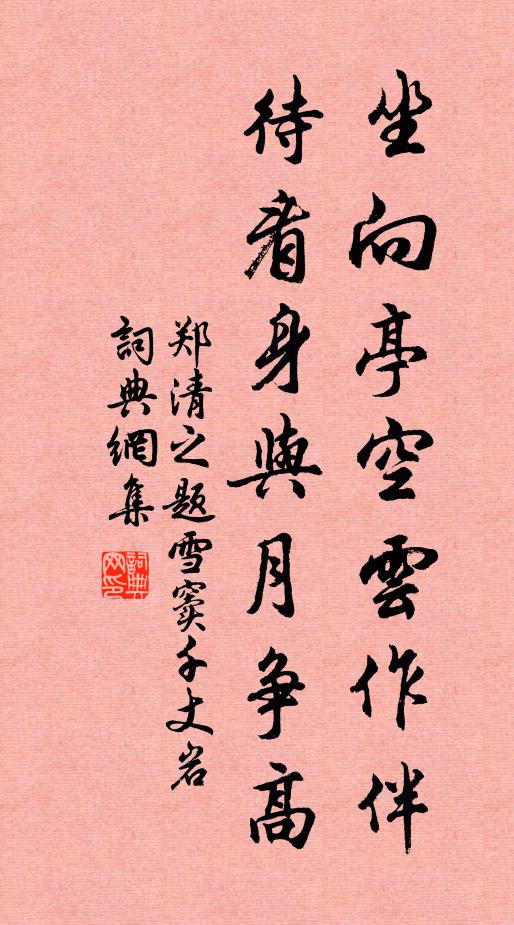 坐向亭空雲作伴
待看身與月争高
郑清之题雪窦千丈岩
詞典網集
詞典网印